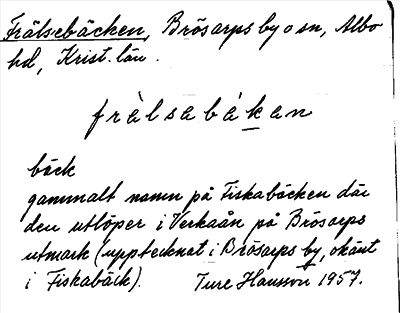 Frälsebäcken, Brösarps by o sn, Albo
hd, Krist. län.
fràlsabákan
bäck
gammalt namn på Fiskabäcken där
den utlöper i Verkaån på Brösarps
utmark (upptecknat i Brösarps by, okänt
i Fiskabäck). Ture Hansson 1957.